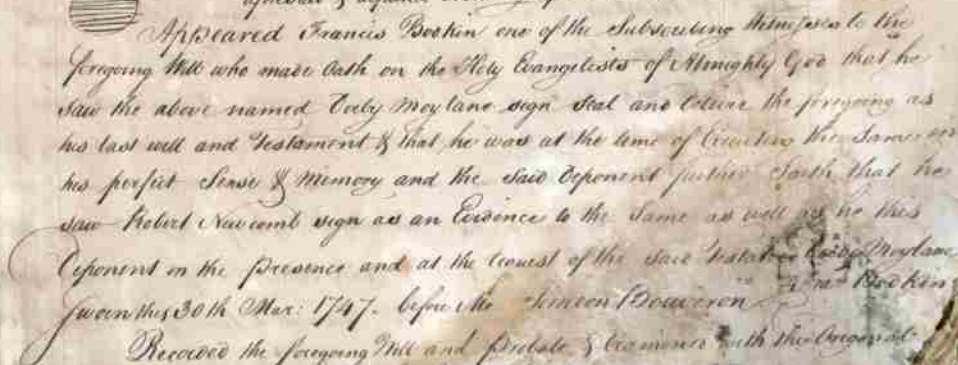 Appeared Francis Bookin one of the Subscribing Witnesses to the
foregoing Will who made Oath on the Holy Evangelists of Almighty God that he
Saw the above named Moylane sign Seal and the foregoing as
his last will and Testament & that he was at the time of the Same
his perfect Sense & Memory and the Said Deponent further Saith that he
saw Robert Newcomb sign as an Evidence to the Same as well as he this
Deponent in the Presence and at the request of the said Testator Moylane
Bookin
Sworn this 30th Mar: 1747. before Me
Recorded the foregoing Will and Probate & Examined with the Original